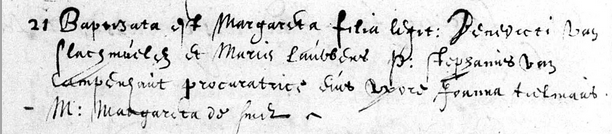 21 Baptizata est Margareta filia legit: Benedicti van
Slachmuelen et Maris Lauwens P: Stephanus van
Campenhaut procuratrice eius uxore Joanna tielmans.
- M: Margareta de smit